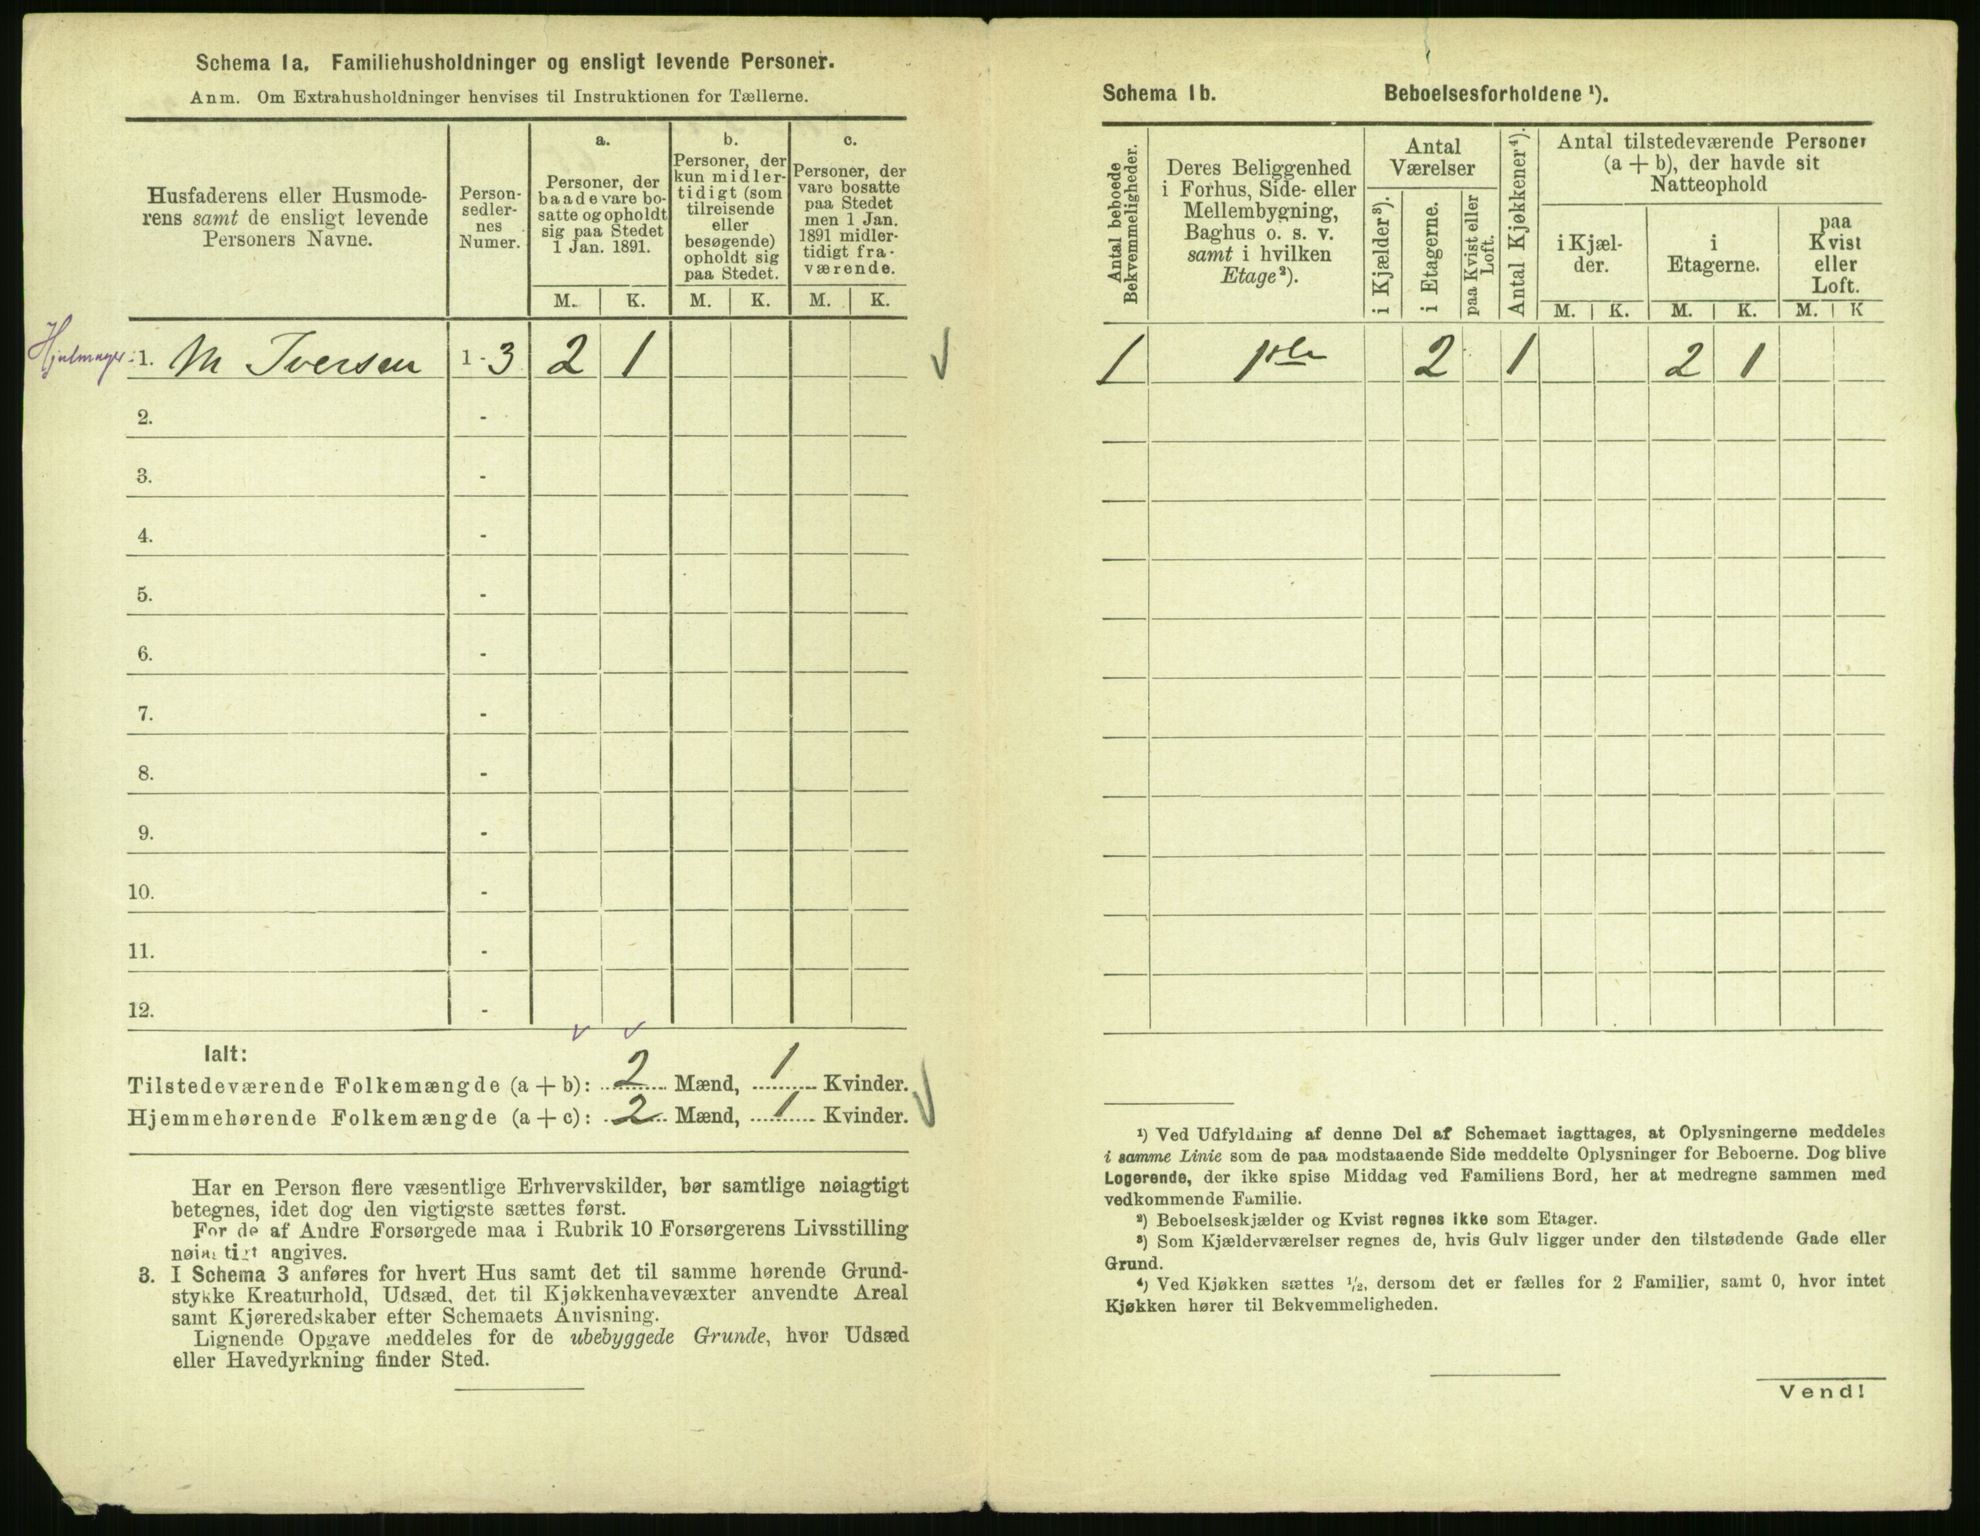 Schema 1a. Familiehusholdninger og ensligt levende Personer.
Anm. Om Extrahusholdninger henvises til Instruktionen for Tællerne.
Husfaderens eller Husmode-
rens samt de ensligt levende
Personers Navne.
Person-
sedler-
nes
Numer.
a.
Personer, der
baade vare bo-
satte og opholdt
sig paa Stedet
1 Jan. 1891.
b.
Personer, der
kun midler-
tidigt (som
tilreisende
eller
besøgende)
opholdt sig
paa Stedet.
c.
Personer, der
vare bosatte
paa Stedet
men 1 Jan.
1891 midler-
tidigt fra-
værende.
M. K. M. K. M. K.
1. M Iversen 1 - 3 2 1
2. -
3. -
4. -
5. -
6. -
7. -
8. -
9. -
10. -
11. -
12. -
Ialt:
Tilstedeværende Folkemængde (a + b): 2 Mænd, 1 Kvinder.
Hjemmehørende Folkemængde (a + c): 2 Mænd, 1 Kvinder.
Har en Person flere væsentlige Erhvervskilder, bør samtlige nøiagtigt
betegnes, idet dog den vigtigste sættes først.
For de af Andre Forsørgede maa i Rubrik 10 Forsørgerens Livsstilling
angives.
3. I Schema 3 anføres for hvert Hus samt det til samme hørende Grund-
stykke Kreaturhold, Udsæd, det til Kjøkkenhavevæxter anvendte Areal
samt Kjøreredskaber efter Schemaets Anvisning.
Lignende Opgave meddeles for de ubebyggede Grunde, hvor Udsæd
eller Havedyrkning finder Sted.
Schema 1b. Beboelsesforholdene ¹).
Antal beboede
Bekvemmeligheder.
Deres Beliggenhed
i Forhus, Side- eller
Mellembygning,
Baghus o. s. v.
samt i hvilken
Etage²).
Antal
Værelser
i Kjælder³).
i Etagerne.
paa Kvist eller
Loft.
Antal Kjøkkener⁴).
Antal tilstedeværende Personer
(a + b), der havde sit
Natteophold
i Kjæl-
der.
i
Etagerne.
paa
Kvist
eller
Loft.
M. K. M. K. M. K
1 1ste 2 1 2 1
¹) Ved Udfyldning af denne Del af Schemaet iagttages, at Oplysningerne meddeles
i samme Linie som de paa modstaaende Side meddelte Oplysninger for Beboerne. Dog blive
Logerende, der ikke spise Middag ved Familiens Bord, her at medregne sammen med
vedkommende Familie.
²) Beboelseskjælder og Kvist regnes ikke som Etager.
³) Som Kjælderværelser regnes de, hvis Gulv ligger under den tilstødende Gade eller
Grund.
⁴) Ved Kjøkken sættes ½, dersom det er fælles for 2 Familier, samt 0, hvor intet
Kjøkken hører til Bekvemmeligheden.
Vend!